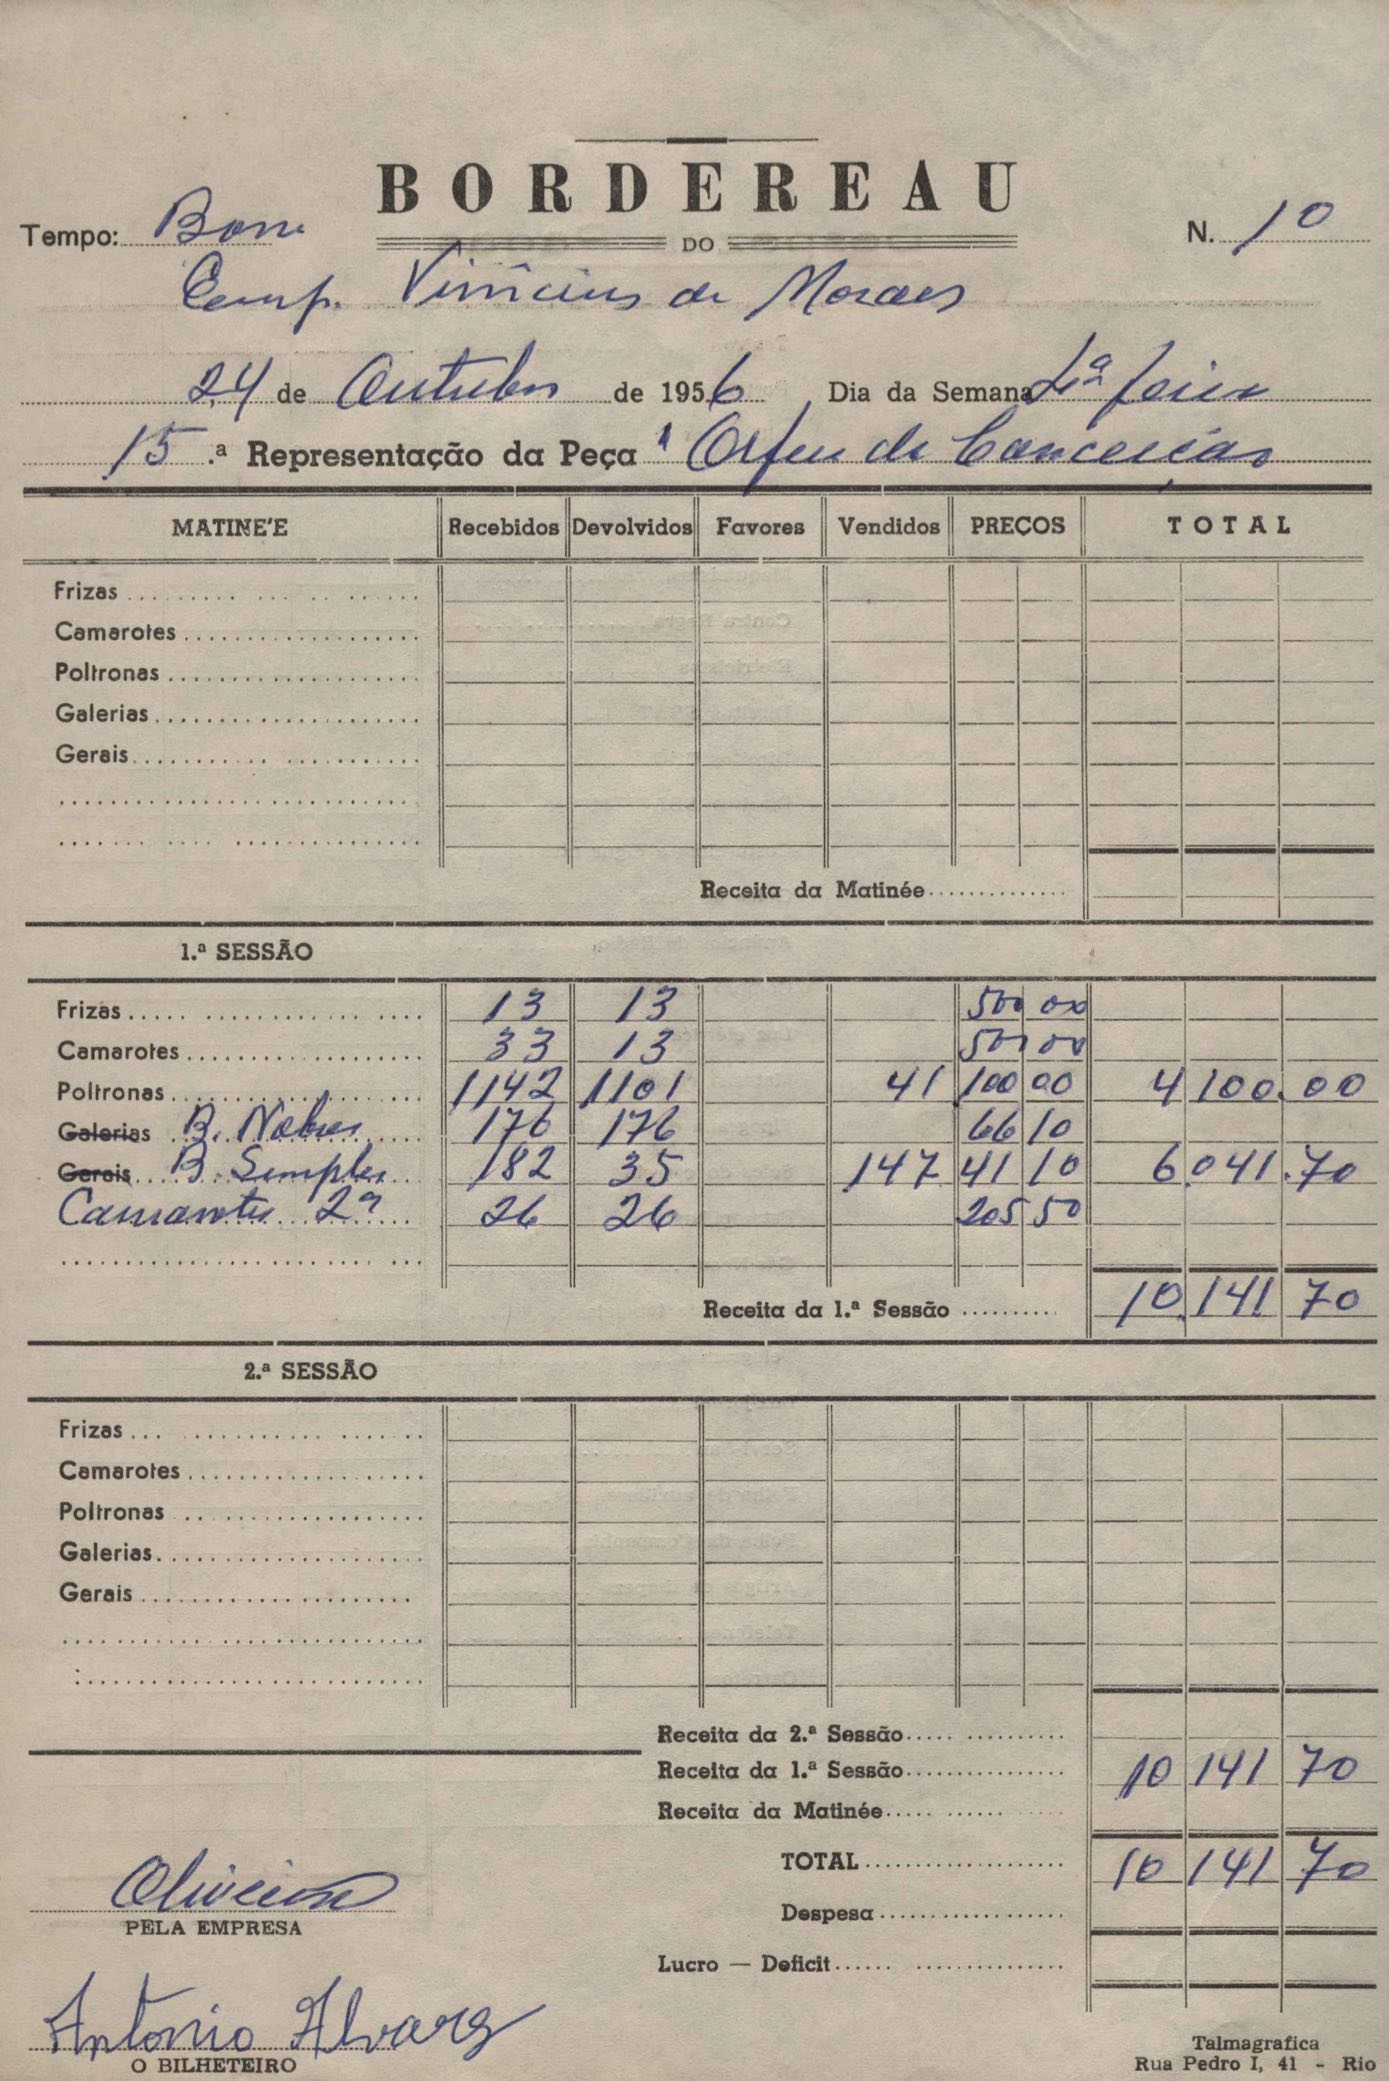 BORDEREAU
Tempo: Bom DO N. 10
Comp. Vinícius de Moraes
24 de Outubro de 1956 Dia da Semana 4ª feira
15.ª Representação da Peça "Orfeu da Conceição
MATINE'E Recebidos Devolvidos Favores Vendidos PREÇOS TOTAL
Frizas
Camarotes
Poltronas
Galerias
Gerais
Receita da Matinée
1.ª SESSÃO
Frizas 13 13 500 00
Camarotes 33 13 500 00
Poltronas 1142 1101 41 100 00 4 100.00
Galerias B. Nobres 176 176 66 10
Gerais B. Simples 182 35 147 41 10 6.041.70
Camarotes 2ª 26 26 205 50
Receita da 1.ª Sessão 10.141 70
2.ª SESSÃO
Frizas
Camarotes
Poltronas
Galerias
Gerais
Receita da 2.ª Sessão
Receita da 1.ª Sessão 10 141 70
Receita da Matinée
TOTAL 10 141 70
Oliveira
PELA EMPRESA
Despesa
Lucro — Deficit
Antonio Alvarez
O BILHETEIRO
Talmagrafica
Rua Pedro I, 41 - Rio